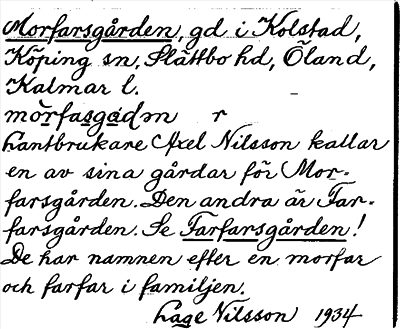 Morfarsgården, gd i Kolstad,
Köping sn, Slättbo hd, Öland,
Kalmar l.
Lantbrukare Axel Nilsson kallar
en av sina gårdar för Mor-
farsgården. Den andra är Far-
farsgården. Se Farfarsgården!
De har namnen efter en morfar
och farfar i familjen.
Lage Nilsson 1934